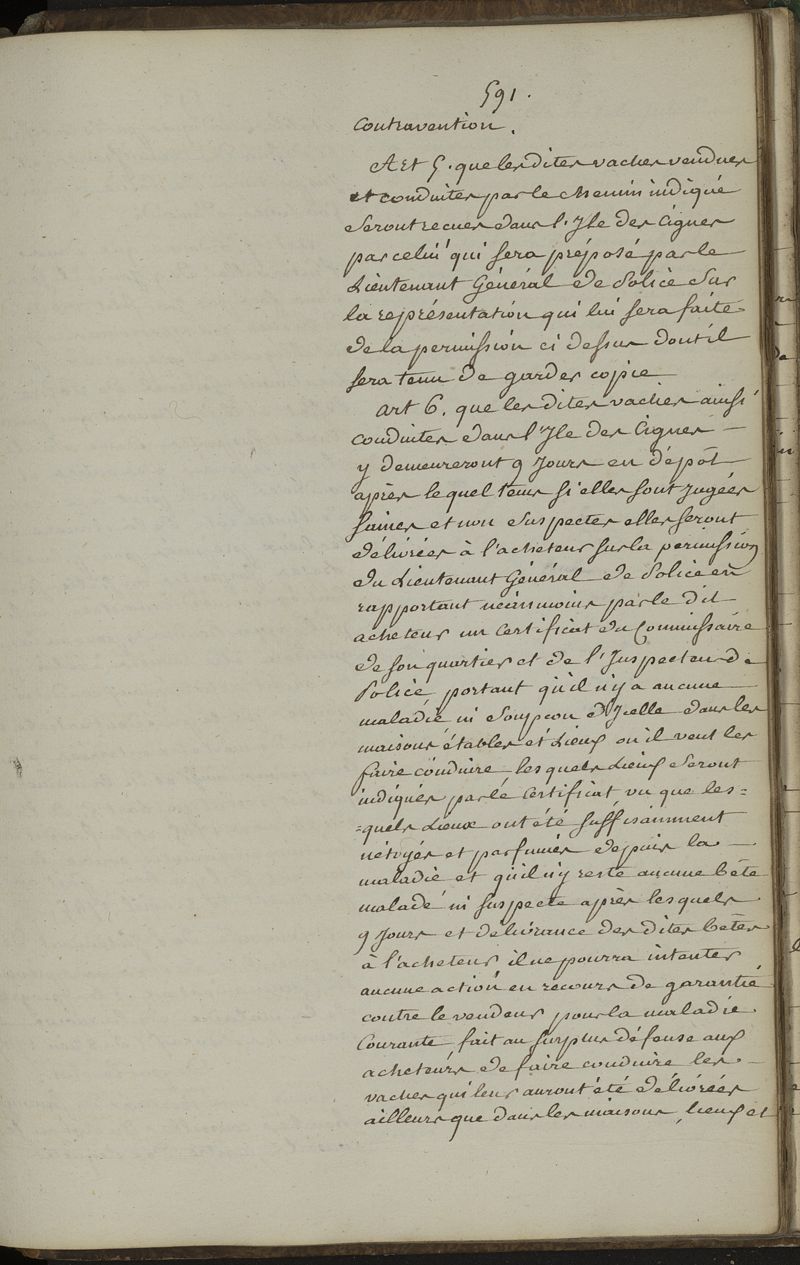 591.
Contravention.
Art 5. que les dites vaches vendues
et conduites par le chemin indiqué
Seront recues dans l'Ile des Cignes
par celui qui sera préposé par le
Lieutenant Général de Police Sur
la représentation qui lui sera faite
de la permission ci dessus dont il
sera tenu de garder copie
art 6. que les dites vaches ainsi
conduites dans l'Ile des Cignes
y demeureront 9 Jours en dépôt
après lequel tems si elles sont Jugées
Saines et non Suspectes elles seront
délivrées à l'acheteur sur la permission
du Lieutenant Général de Police en
rapportant néanmoins par le dit
acheteur un Certificat du Commissaire
de son quartier et de l'Inspecteur de
Police portant qu'il n'y a aucune
maladie ni Soupçon d'Icelle dans les
maisons étables et Lieux ou il veut les
faire conduire les quels Lieux Seront
indiqués par le Certificat vu que les=
=quels Lieux ont été suffisamment
nétoyés et parfumés depuis la
maladie et qu'il n'y reste aucune bête
malade ni suspecte après lesquels
9 Jours et délivrance des dites bêtes
à l'acheteur il ne pourra intenter
aucune action en recours de garantie
contre le vendeur pour la maladie
Courante fait au surplus défense aux
acheteurs de faire conduire les
vaches qui leur auront été délivrées
ailleurs que dans les maisons, lieux et